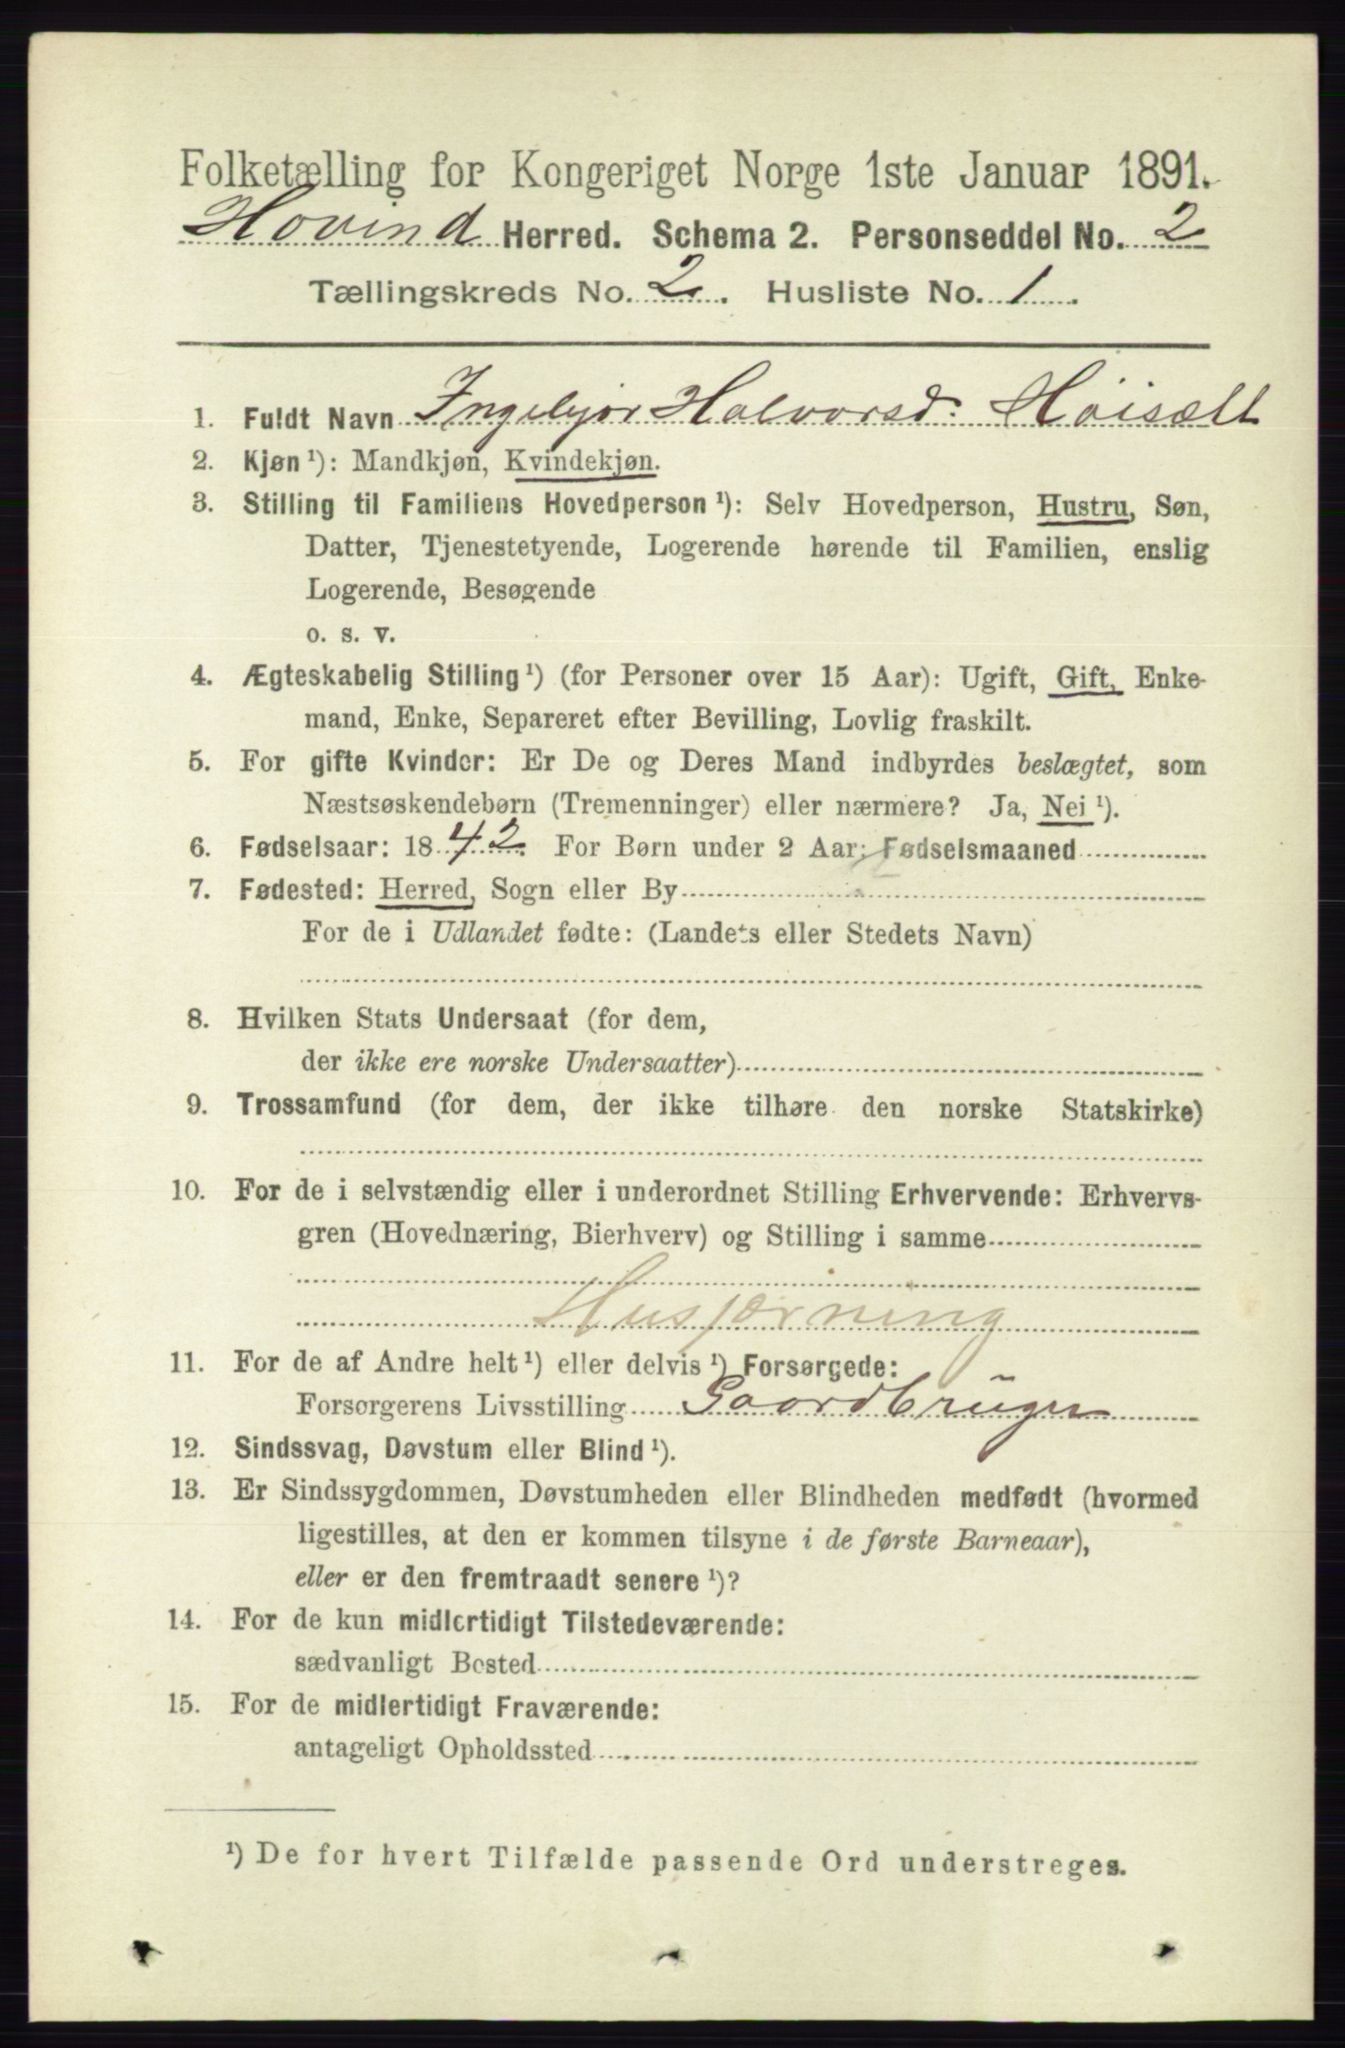 Folketælling for Kongeriget Norge 1ste Januar 1891.
Hovind Herred. Schema 2. Personseddel No. 2
Tællingskreds No. 2. Husliste No. 1.
1. Fuldt Navn Ingebjør Halvorsd. Høisæth
2. Kjøn ¹): Mandkjøn, Kvindekjøn.
3. Stilling til Familiens Hovedperson ¹): Selv Hovedperson, Hustru, Søn,
Datter, Tjenestetyende, Logerende hørende til Familien, enslig
Logerende, Besøgende
o. s. v.
4. Ægteskabelig Stilling ¹) (for Personer over 15 Aar): Ugift, Gift, Enke-
mand, Enke, Separeret efter Bevilling, Lovlig fraskilt.
5. For gifte Kvinder: Er De og Deres Mand indbyrdes beslægtet, som
Næstsøskendebørn (Tremenninger) eller nærmere? Ja, Nei ¹).
6. Fødselsaar: 1842. For Børn under 2 Aar: Fødselsmaaned
7. Fødested: Herred, Sogn eller By
For de i Udlandet fødte: (Landets eller Stedets Navn)
8. Hvilken Stats Undersaat (for dem,
der ikke ere norske Undersaatter)
9. Trossamfund (for dem, der ikke tilhøre den norske Statskirke)
10. For de i selvstændig eller i underordnet Stilling Erhvervende: Erhvervs-
gren (Hovednæring, Bierhverv) og Stilling i samme
Husgjerning
11. For de af Andre helt ¹) eller delvis ¹) Forsørgede:
Forsørgerens Livsstilling Gaardbruger
12. Sindssvag, Døvstum eller Blind ¹).
13. Er Sindssygdommen, Døvstumheden eller Blindheden medfødt (hvormed
ligestilles, at den er kommen tilsyne i de første Barneaar),
eller er den fremtraadt senere ¹)?
14. For de kun midlertidigt Tilstedeværende:
sædvanligt Bosted
15. For de midlertidigt Fraværende:
antageligt Opholdssted
¹) De for hvert Tilfælde passende Ord understreges.